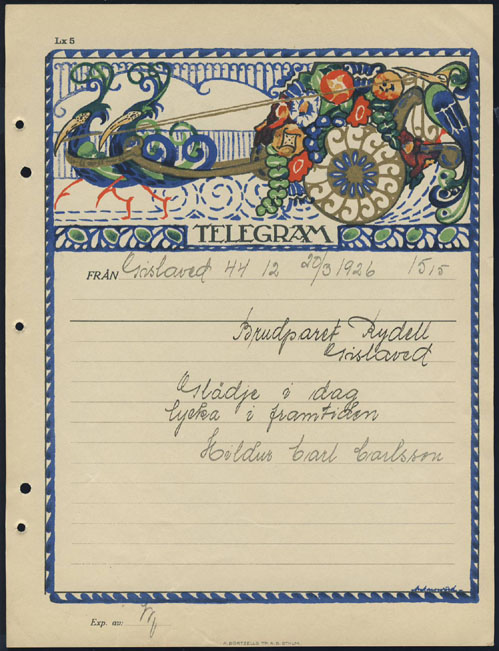 Lx 5
TELEGRAM
FRÅN Gislaved 44 12 20/3 1926 15,15
Brudparet Rydell
Gislaved
Glädje i dag
lycka i framtiden
Hildur Carl Carlsson
Exp. av:
A. BÖRTZELLS TR. A. B. STHLM.